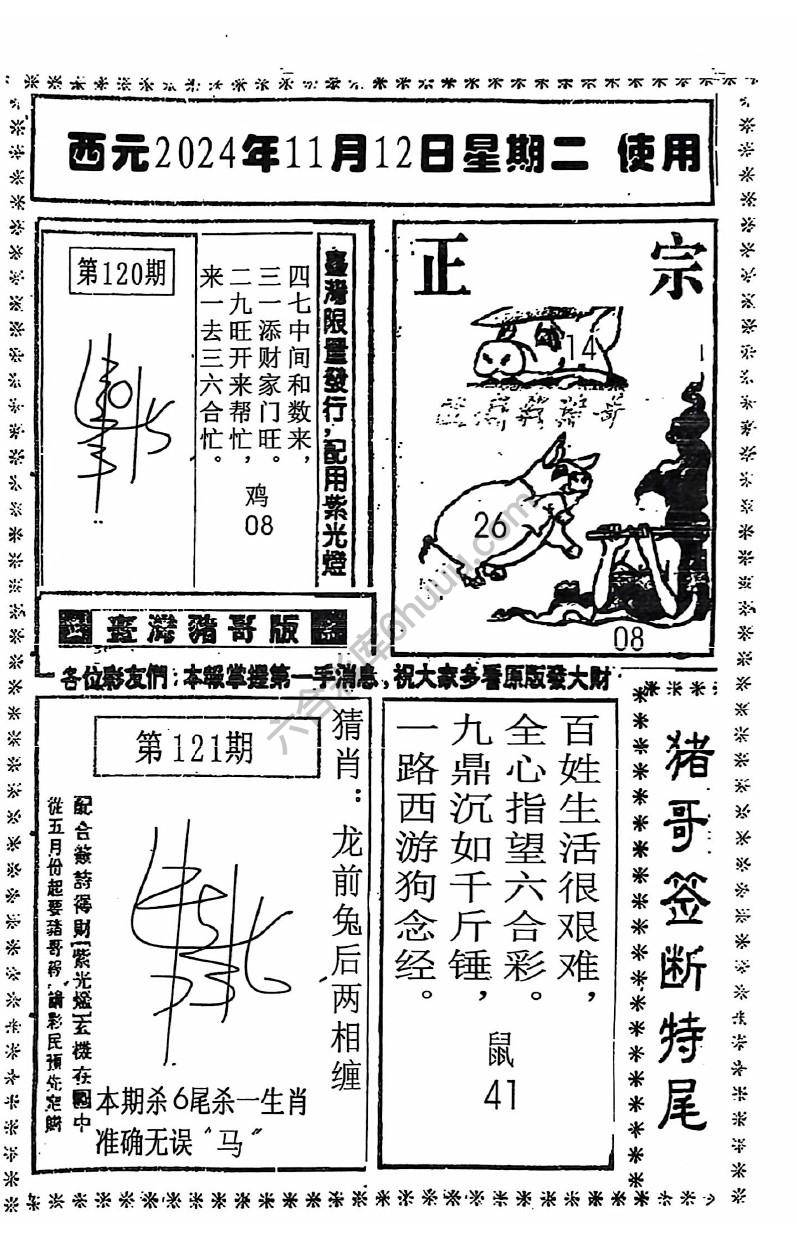 西元2024年11月12日星期二 使用
第120期
四七中间和数来，
三一添财家门旺。
二九旺开来帮忙，
来一去三六合忙。
鸡
08
臺灣限量發行，配用紫光燈
正 宗
14
26
08
臺灣豬哥版
各位彩友們：本報掌握第一手消息，祝大家多看原版發大財
第121期
猜肖：龙前兔后两相缠
配合簽詩得財【紫光燈】玄機在圖中
從五月份起要豬哥報，請彩民預先定購
本期杀6尾杀一生肖
准确无误“马”
百姓生活很艰难，
全心指望六合彩。
九鼎沉如千斤锤，
一路西游狗念经。
鼠
41
猪哥签断特尾
六合彩库6huuu.com